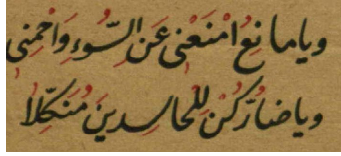 ويامانعُ امْنَعْنى عَنِ السُّوءِ وَاحْمِنِى
وياضارُّ كُنْ لِلْحاسدينَ مُنَكِّلَا